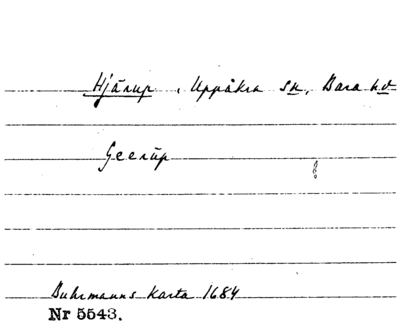 Hjärup, Uppåkra sn, Bara hd
Geerup
Buhrmanns Karta 1684
Nr 5543.